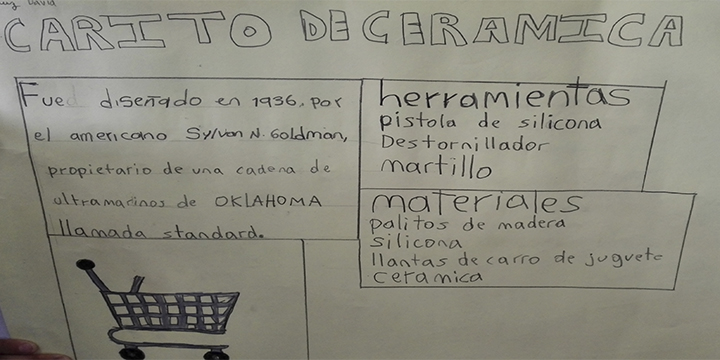 David
CARITO DE CERAMICA
Fue diseñado en 1936. por
el americano Sylvan N. Goldman,
propietario de una cadena de
ultramarinos de OKLAHOMA
llamada standard.
herramientas
pistola de silicona
Destornillador
martillo
materiales
palitos de madera
silicona
llantas de carro de juguete
ceramica